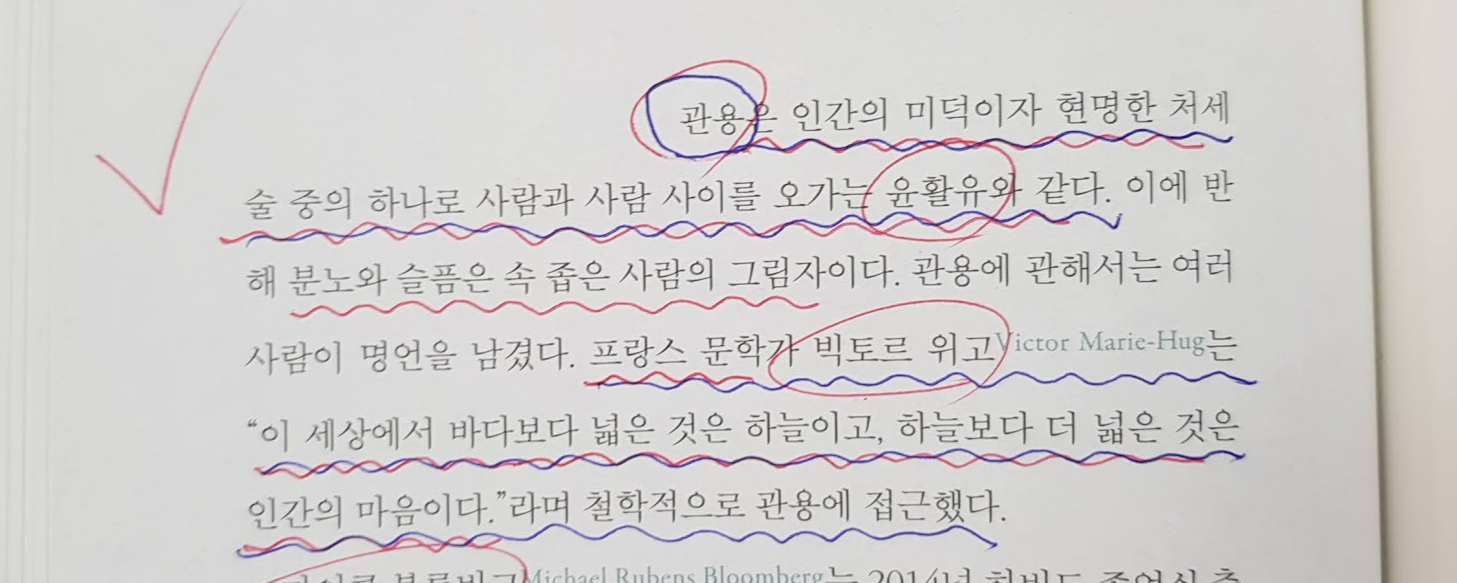 관용은 인간의 미덕이자 현명한 처세
술 중의 하나로 사람과 사람 사이를 오가는 윤활유와 같다. 이에 반
해 분노와 슬픔은 속 좁은 사람의 그림자이다. 관용에 관해서는 여러
사람이 명언을 남겼다. 프랑스 문학가 빅토르 위고Victor Marie-Hug는
“이 세상에서 바다보다 넓은 것은 하늘이고, 하늘보다 더 넓은 것은
인간의 마음이다.”라며 철학적으로 관용에 접근했다.
Michael Rubens Bloomberg는 2014년